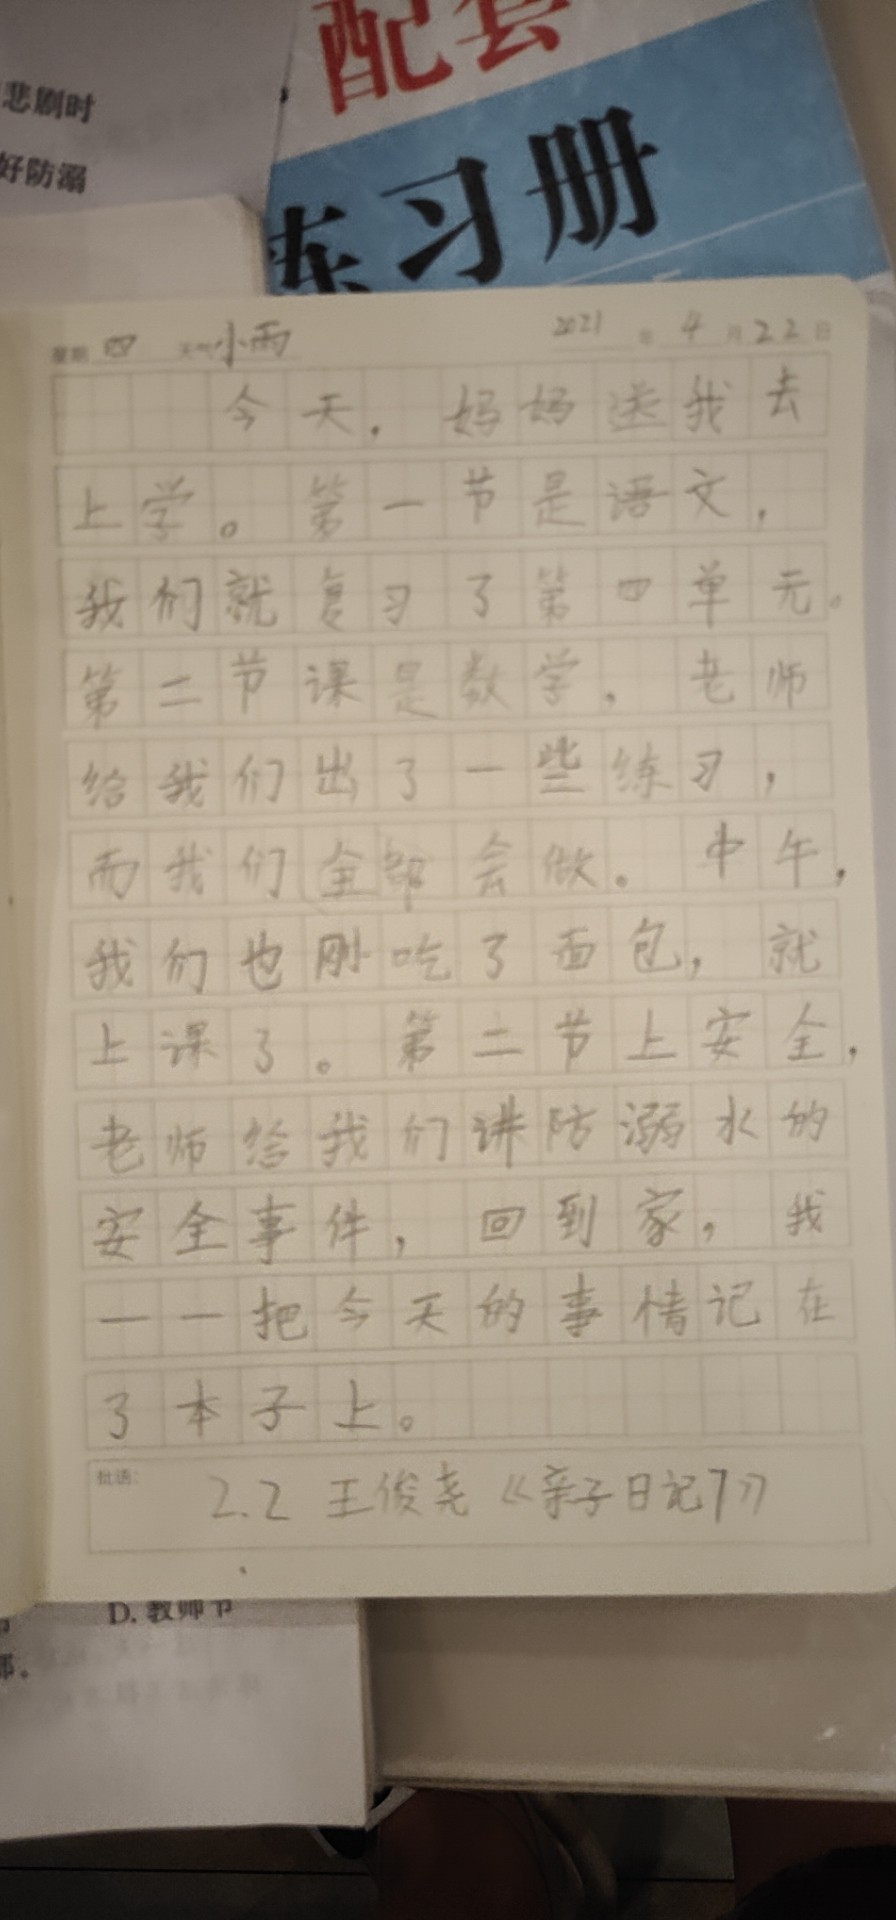 悲剧时
好防溺
配套
练习册
星期 四 天气 小雨 2021 年 4 月 22 日
今天，妈妈送我去
上学。第一节是语文，
我们就复习了第四单元。
第二节课是数学，老师
给我们出了一些练习，
而我们全部会做。中午，
我们也刚吃了面包，就
上课了。第二节上安全，
老师给我们讲防溺水的
安全事件，回到家，我
一一把今天的事情记在
了本子上。
批语：
2.2 王俊尧《亲子日记7》
D. 教师节